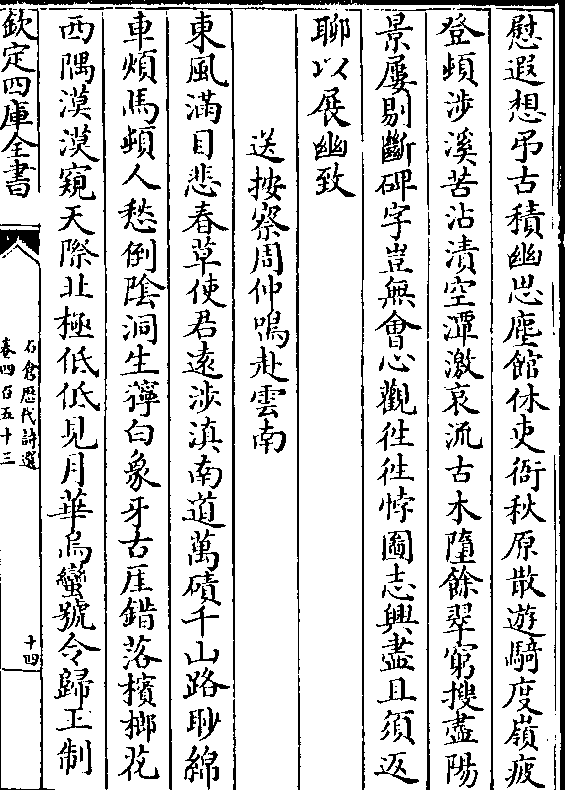 慰遐想弔古積幽思塵館休吏衙秋原散遊騎度嶺疲
登頓涉溪苦沾漬空潭激哀流古木墮餘翠窮搜盡陽
景屢剔斷碑字豈無會心觀徃徃悖圖志興盡且須返
聊以展幽致
送按察周仲鳴赴雲南
東風滿目悲春草使君遠涉滇南道萬磧千山路眇綿
車煩馬頓人愁倒陰洞生獰白象牙古厓錯落檳榔花
西隅漠漠窺天際北極低低見月華烏蠻號令歸王制
欽定四庫全書
石倉歷代詩選
卷四百五十三
十四